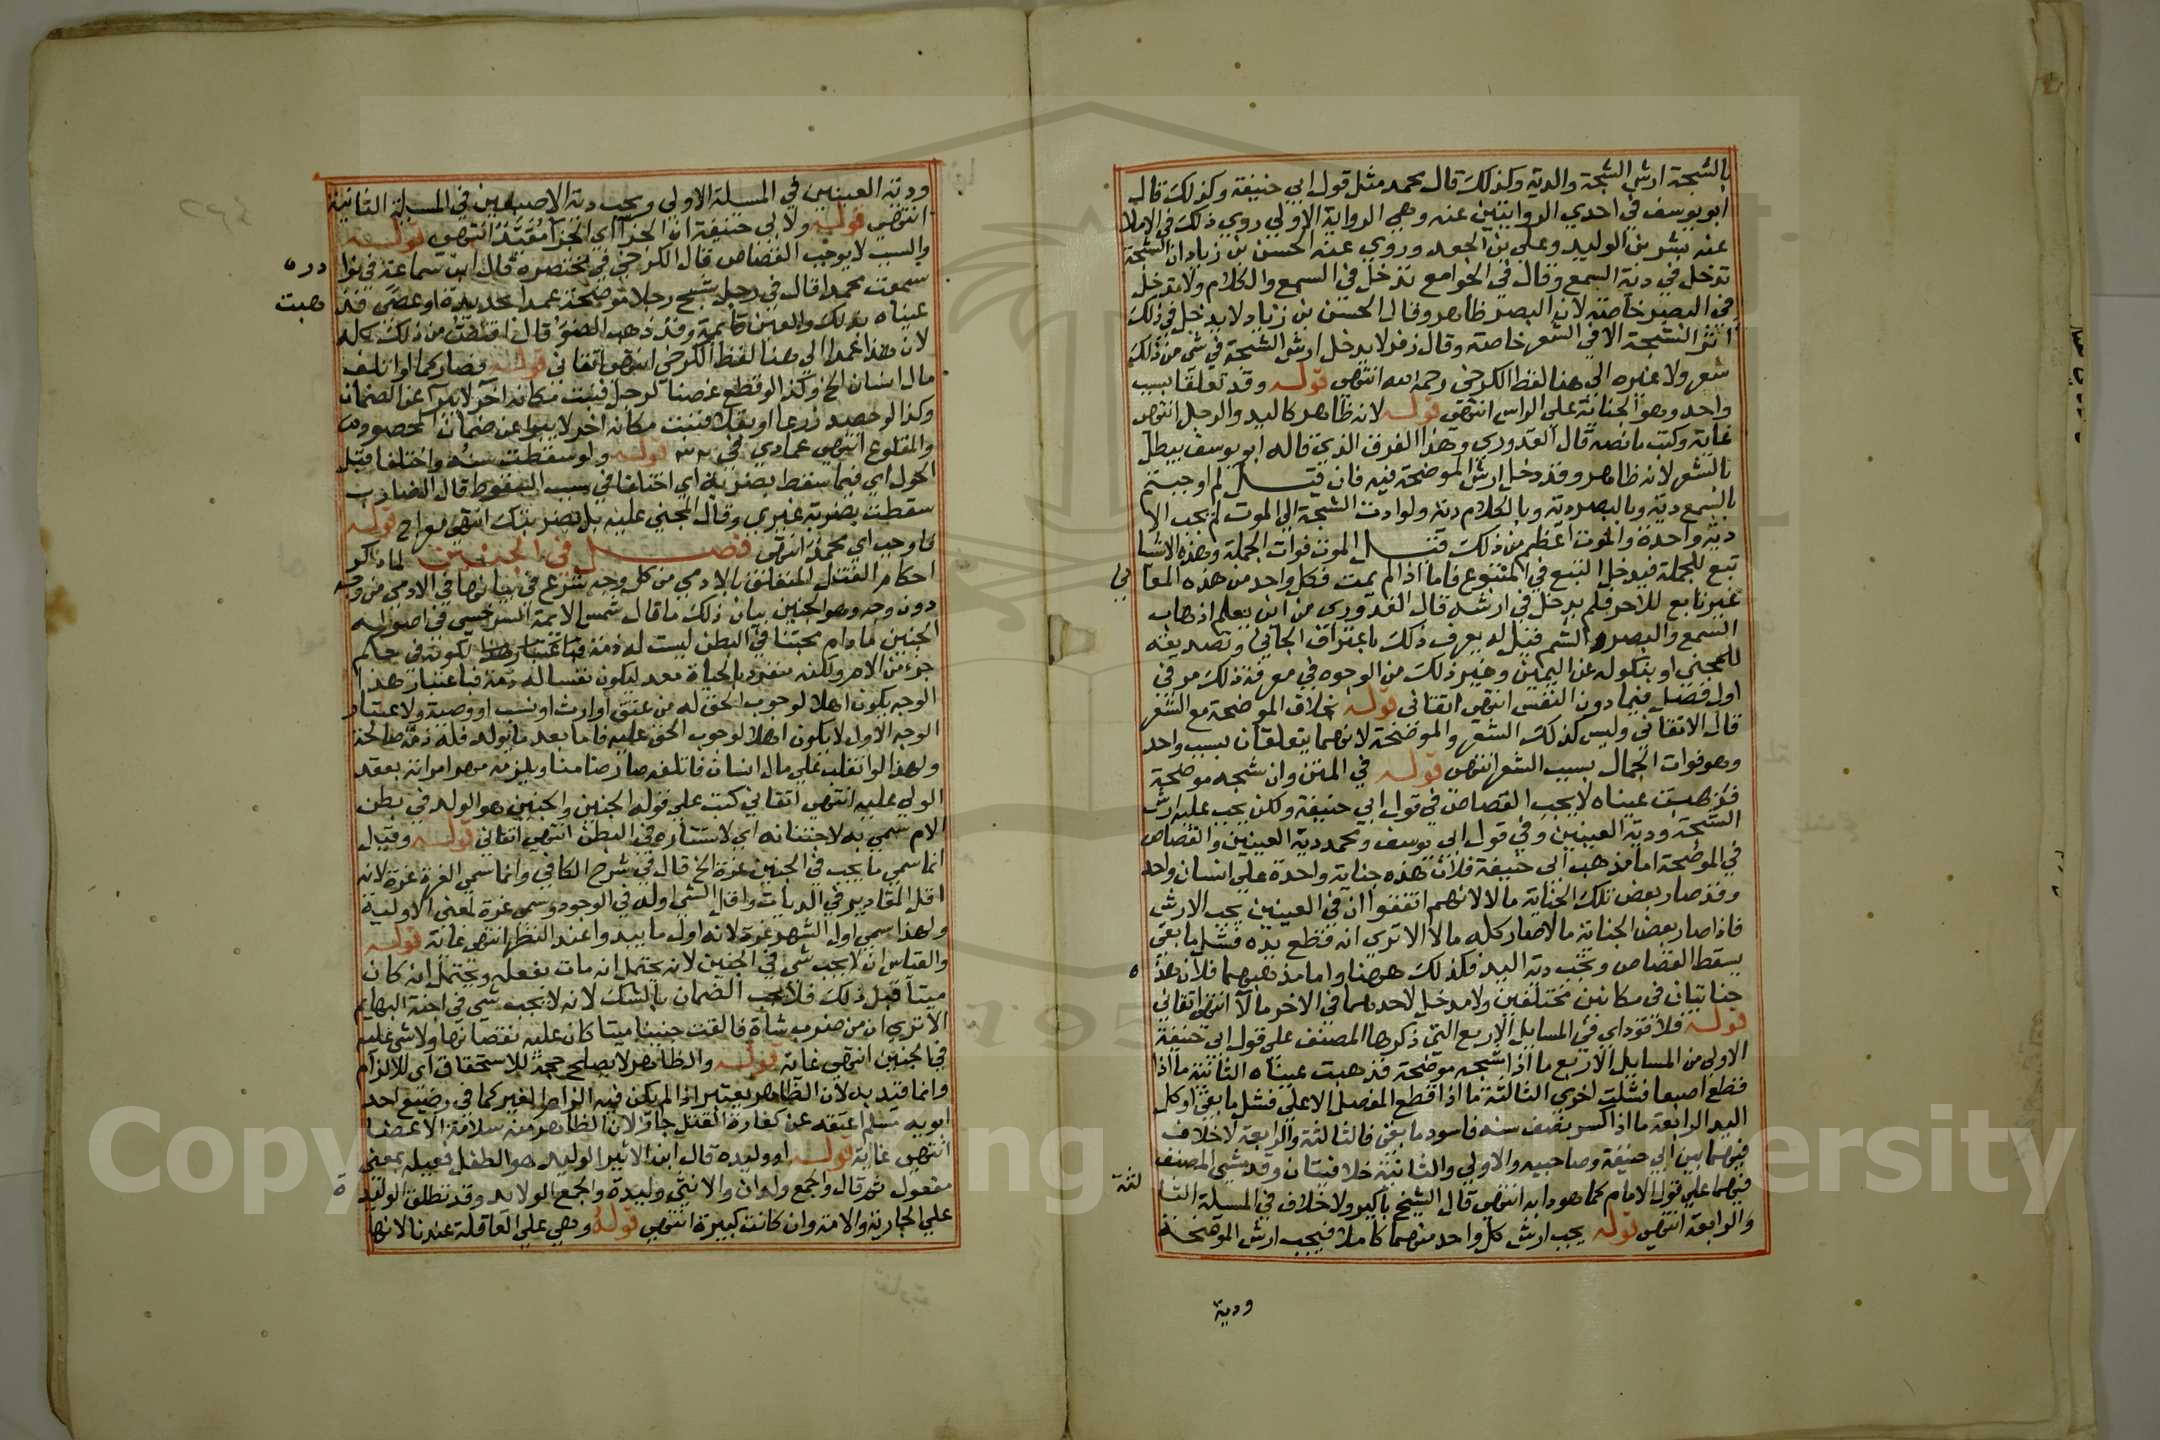 بالشجة ارش الشجة والدية وكذلك قال محمد مثل قول ابي حنيفة وكذلك قال
ابو يوسف في احدي الروايتين عنه وهي الرواية الاولي روي ذلك في الاملا
عنه بشر بن الوليد وعلي بن الجعد وروي عنه الحسن بن زياد ان الشجة
تدخل في دية السمع وقال في الجوامع تدخل في السمع والكلام ولا تدخل
في البصر خاصة لان البصر ظاهر وقال الحسن بن زياد لا يدخل في ذلك
اثر الشجة الا في الشعر خاصة وقال زفر لا يدخل ارش الشجة في شي من ذلك
شعر ولا غيره الي هنا لفظ الكرخي رحمه الله انتهي قوله وقد تعلقا بسبب
واحد وهو الجناية علي الراس انتهي قوله لانه ظاهر كاليد والرجل انتهي
غاية وكتب ما نصه قال القدوري وهذا الفرق الذي قاله ابو يوسف يبطل
بالشعر لانه ظاهر وقد دخل ارش الموضحة فيه فان قيل لم اوجبتم
بالسمع دية وبالبصر دية وبالكلام دية ولو ادت الشجة الي الموت لم يجب الا
دية واحدة والموت اعظم من ذلك قيل الموت فوات الجملة وهذه الاشيا
تبع للجملة فيدخل التبع في المتبوع فاما اذا لم يمت فكل واحد من هذه المعا
ني
غير تابع للاخر فلم يدخل في ارشه قال القدوري من اين يعلم اذهاب
السمع والبصر والشم قيل له يعرف ذلك باعتراف الجاني وتصديقه
للمجني او بنكوله عن اليمين وغير ذلك من الوجوه في معرفة ذلك مر في
اول فصل فيما دون النفس انتهي اتقاني قوله بخلاف الموضحة مع الشعر
قال الاتقاني وليس كذلك الشعر والموضحة لانهما يتعلقان بسبب واحد
وهو فوات الجمال بسبب الشعر انتهي قوله في المتن وان شجه موضحة
فذهبت عيناه لا يجب القصاص في قول ابي حنيفة ولكن يجب عليه ارش
الشجة ودية العينين وفي قول ابي يوسف ومحمد دية العينين والقصاص
في الموضحة اما مذهب ابي حنيفة فلان هذه جناية واحدة علي انسان واحد
وقد صار بعض تلك الجناية مالا لانهم اتفقوا ان في العينين يجب الارش
فاذا صار بعض الجناية مالا صار كله مالا الا تري انه قطع يده فشل ما بقي
يسقط القصاص وتجب دية اليد فكذلك ههنا واما مذهبهما فلان هذ
ه
جنايتان في مكانين مختلفين ولا مدخل لاحدهما في الاخر مالا انتهي اتقاني
قوله فلا قود اي في المسايل الاربع التي ذكرها المصنف علي قول ابي حنيفة
الاولي من المسايل الاربع ما اذا شجه موضحة فذهبت عيناه الثانية ما اذا
قطع اصبعا فشلت اخري الثالثة ما اذا قطع المفصل الاعلي فشل ما بقي او كل
اليد الرابعة ما اذا كسر نصف سنه فاسود ما بقي فالثالثة والرابعة لا خلاف
فيهما بين ابي حنيفة وصاحبيه والاولي والثانية خلافيتان وقد مشي المصنف
فيهما علي قول الامام كما هو دابه انتهي قال الشيخ باكير ولا خلاف في المسيلة الثا
لثة
والرابعة انتهي قوله يجب ارش كل واحد منهما كاملا فيجب ارش الموضحة
ودية
ودية العينين في المسيلة الاولي ويجب دية الاصبعين في المسيلة الثانية
انتهي قوله ولابي حنيفة ان الجزا اي الجزا مقيد انتهي قوله
والسبب لا يوجب القصاص قال الكرخي في مختصره قال ابن سماعة في نوا
دره
سمعت محمدا قال في رجل شج رجلا موضحة عمدا بحديدة او عصي فذ
هبت
عيناه بذلك والعين قايمة وقد ذهب الضو قال اقتص من ذلك كله
لان هذا عمد الي هنا لفظ الكرخي انتهي اتقاني قوله فصار كما لو اتلف
مال انسان الخ وكذا لو قطع غصنا لرجل فنبت مكانه اخر لا يبرا عن الضمان
وكذا لو حصد زرعا او بقلا فنبت مكانه اخر لا يبرا عن ضمان المحصود
والمقلوع انتهي عمادي في قوله ولو سقطت سنه واختلفا قبل
الحول اي فيما سقط بضربه اي اختلفا في سبب السقوط قال الضارب
سقطت بضربة غيري وقال المجني عليه بل بضربتك انتهي معراج قوله
فاوجب اي محمد انتهي فصل في الجنين لما ذكر
احكام القتل المتعلق بالادمي من كل وجه شرع في بيانها في الادمي من وجه
دون وجه وهو الجنين بيان ذلك ما قال شمس الايمة السرخسي في اصوله
الجنين ما دام مجتنا في البطن ليست له ذمة فباعتبار هذا لكونه في حكم
جزء من الام ولكنه منفرد بالحياة معد ليكون نفسا له ذمة فباعتبار هذا
الوجه يكون اهلا لوجوب الحق له من عتق او ارث او نسب او وصية ولاعتبار
الوجه الاول لا يكون اهلا لوجوب الحق عليه فاما بعد ما يولد فله ذمة صالحة
ولهذا لو انقلب علي مال انسان فاتلفه صار ضامنا ويلزمه مهر امراته بعقد
الولي عليه انتهي اتقاني كتب علي قوله الجنين والجنين هو الولد في بطن
الام سمي به لاجتنانه اي لاستتاره في البطن انتهي اتقاني قوله وقيل
انما سمي ما يجب في الجنين غرة الخ قال في شرح الكافي وانما سمي الغرة غرة لانه
اقل المقادير في الديات واقل الشي اوله في الوجود وسمي غرة لمعني الاولية
ولهذا سمي اول الشهر غرة لانه اول ما يبدوا عند النظر انتهي غاية قوله
والقياس ان لا يجب شي في الجنين لانه يحتمل انه مات بفعله ويحتمل انه كان
ميتا قبل ذلك فلا يجب الضمان بالشك لانه لا يجب شي في اجنة البهايم
الا تري ان من ضرب شاة فالقت جنينا ميتا كان عليه نقصانها ولا شي عليه
في الجنين انتهي غاية قوله والظاهر لا يصلح حجة للاستحقاق اي للالزام
وانما قيد به لان الظاهر يعتبر اذا لم يكن فيه الزام الغير كما في رضيع احد
ابويه مسلم اعتقه عن كفارة القتل جاز لان الظاهر منه سلامة الاعضا
انتهي غاية قوله او وليدة قال ابن الاثير الوليد هو الطفل فعيل بمعني
مفعول ثم قال والجمع ولدان والانثي وليدة والجمع الولايد وقد تطلق الوليد
ة
علي الجارية والامة وان كانت كبيرة انتهي قوله وهي علي العاقلة عندنا لانها